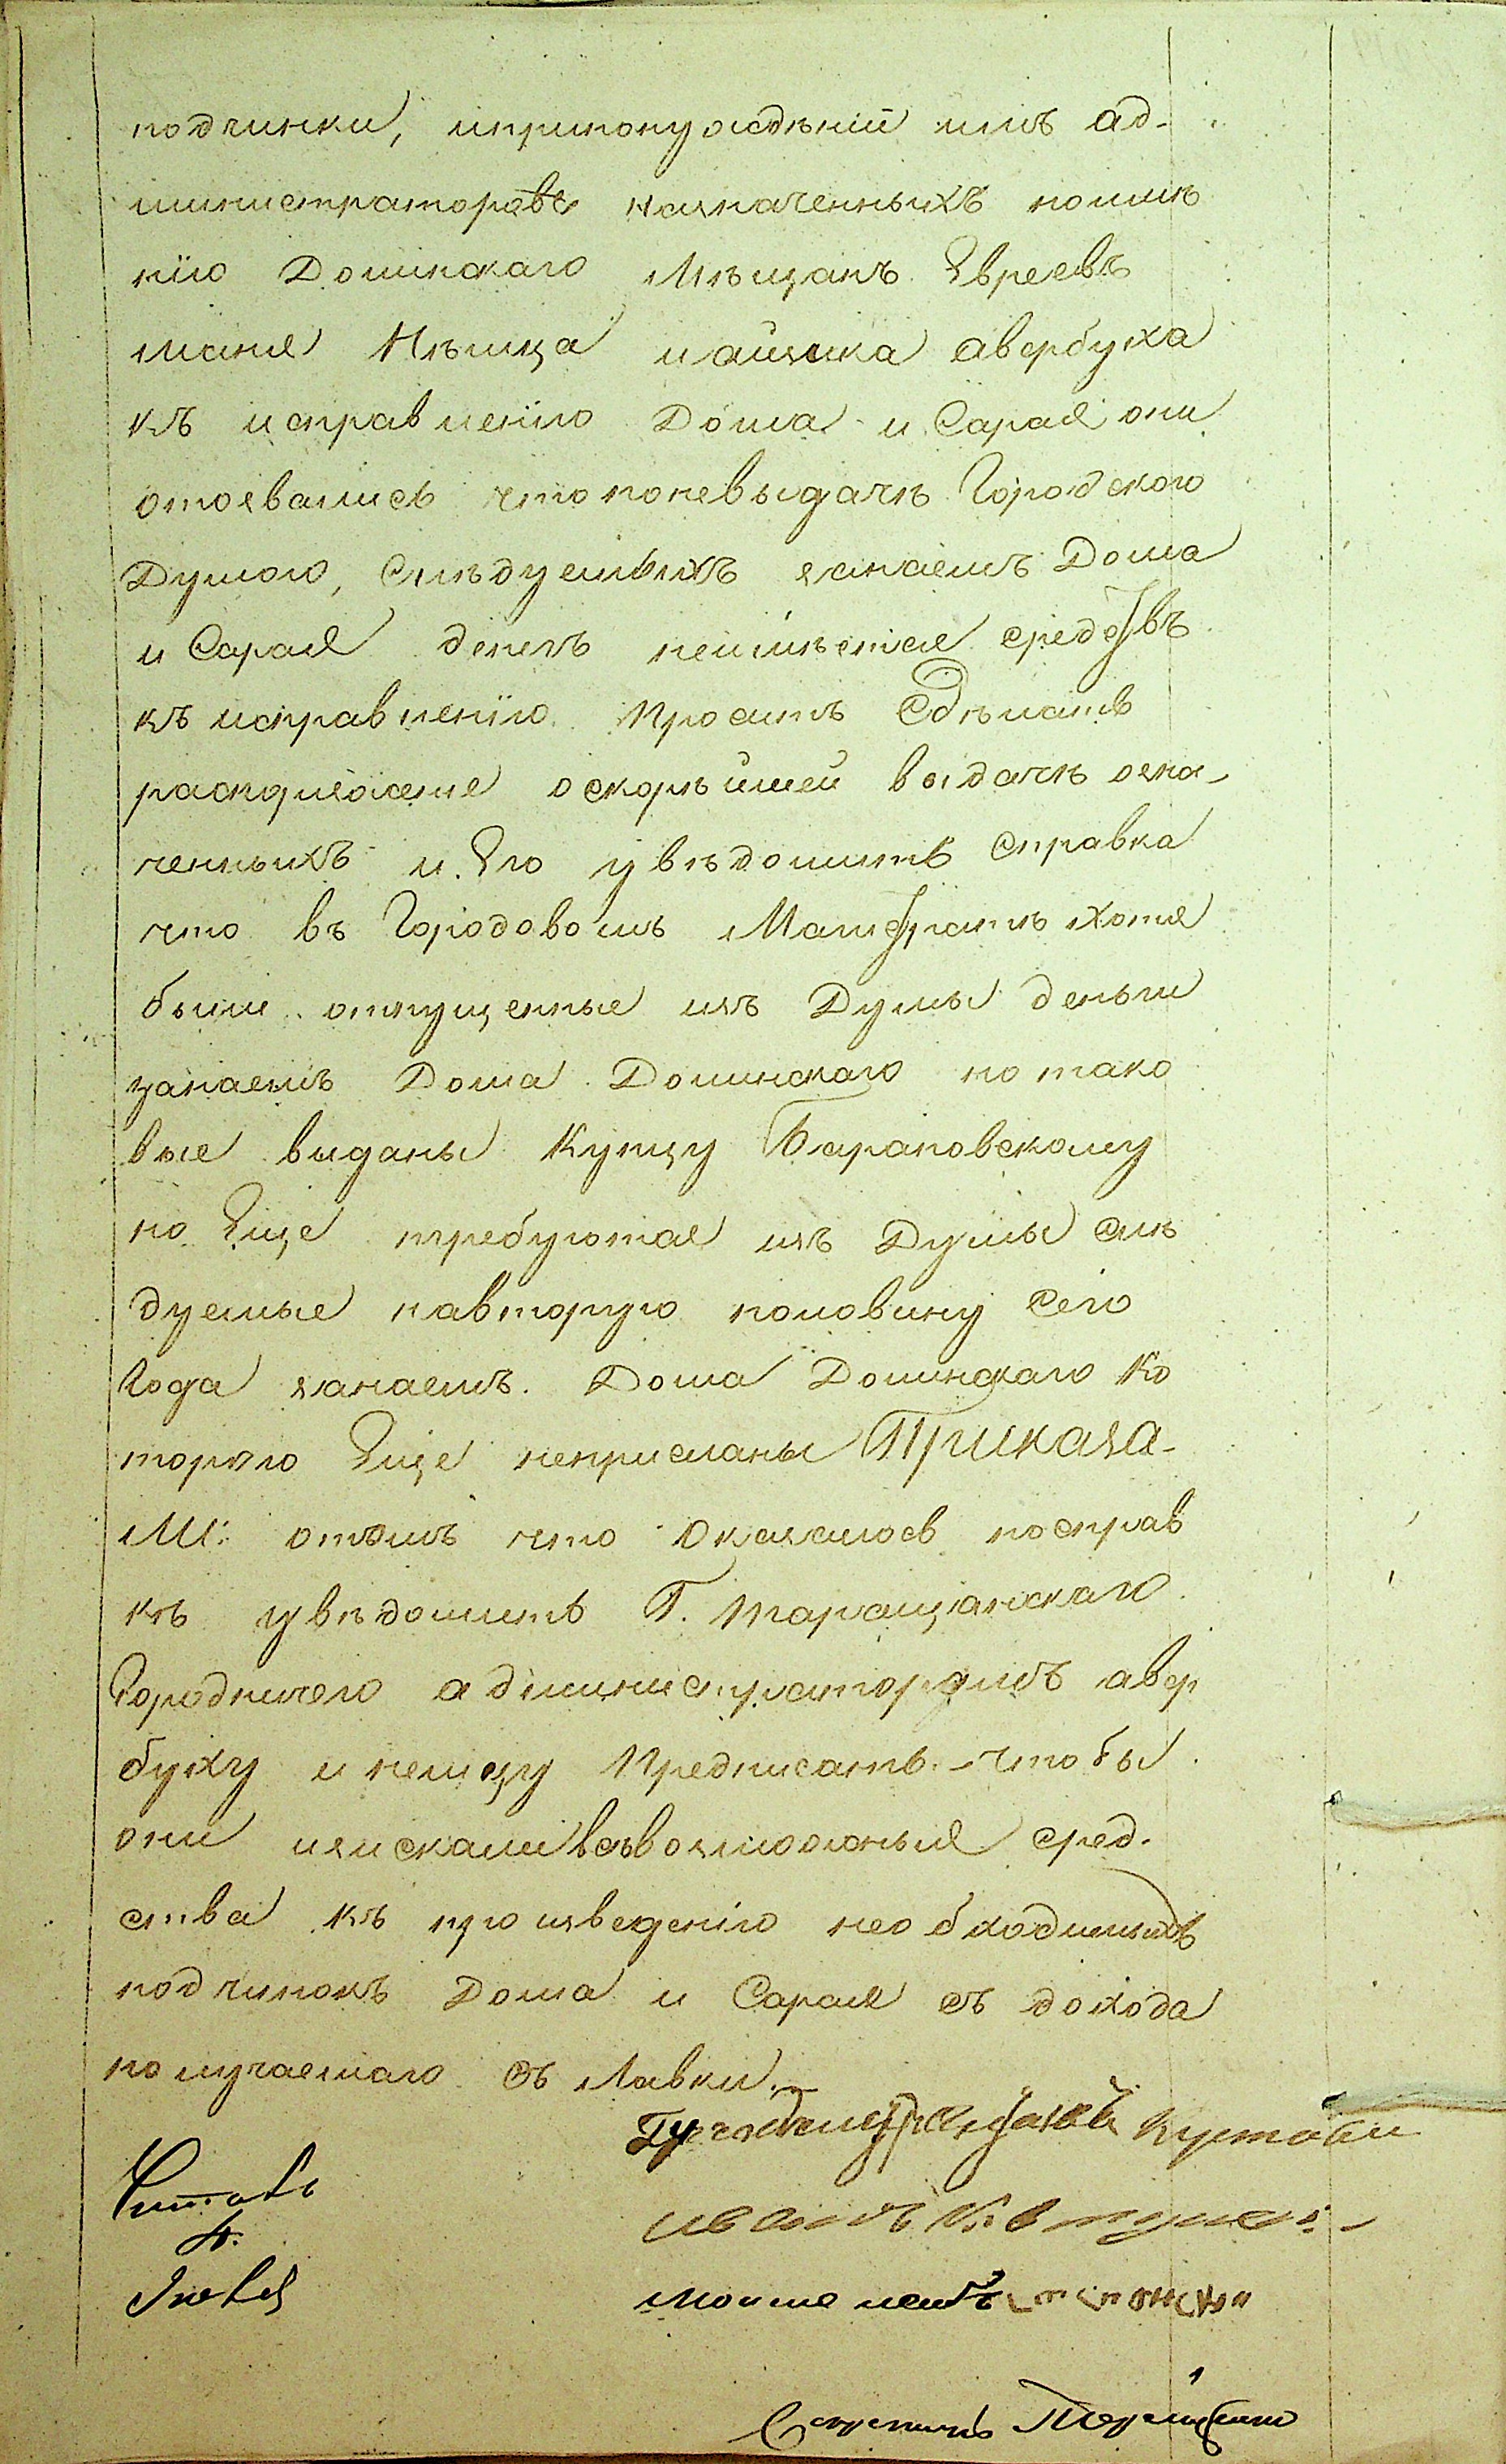 подчинки, ипринонуождѣнiи имъ ад-
министраторовъ назначенныхъ поимѣ
нiю Долинскаго Мѣщанъ Евреевъ
маня Нѣмца иайзика авербуха
къ исправленiю Дома и Сарая они
отозвались что поневыдачѣ Городского
Думою, Слѣдуемыхъ занаемъ Дома
и Сарая денегъ неимѣетса средствъ
къ исправленiю. Проситъ Сдѣлать
распоряженiе оскорѣйшей выдачѣ озна-
ченныхъ и Его увѣдомить Справка
что въ Городовомъ Магистратѣ хотя
были отпущенные изъ Думы деньги
занаемъ Дома Долинскаго но тако
вые выданы Купцу Барановскому
но Еще требуются изъ Думы слѣ
дуемые навторую половину Сего
Года занаемъ Дома Долинскаго Ко
торыю Еще неприсланы Приказа-
ли: отомъ что Оказалось посправ
кѣ увѣдомить Г. таращанскаго
Городничего администраторамъ авер
буху и немцу Предписать чтобы
они изискали всѣвозможныя сред-
ства къ произведенiю необходимыхъ
подчинокъ Дома и Сарая съ дохода
получаемаго съ Лавки.
Читалъ
иванъ
Мошко
Секретарь